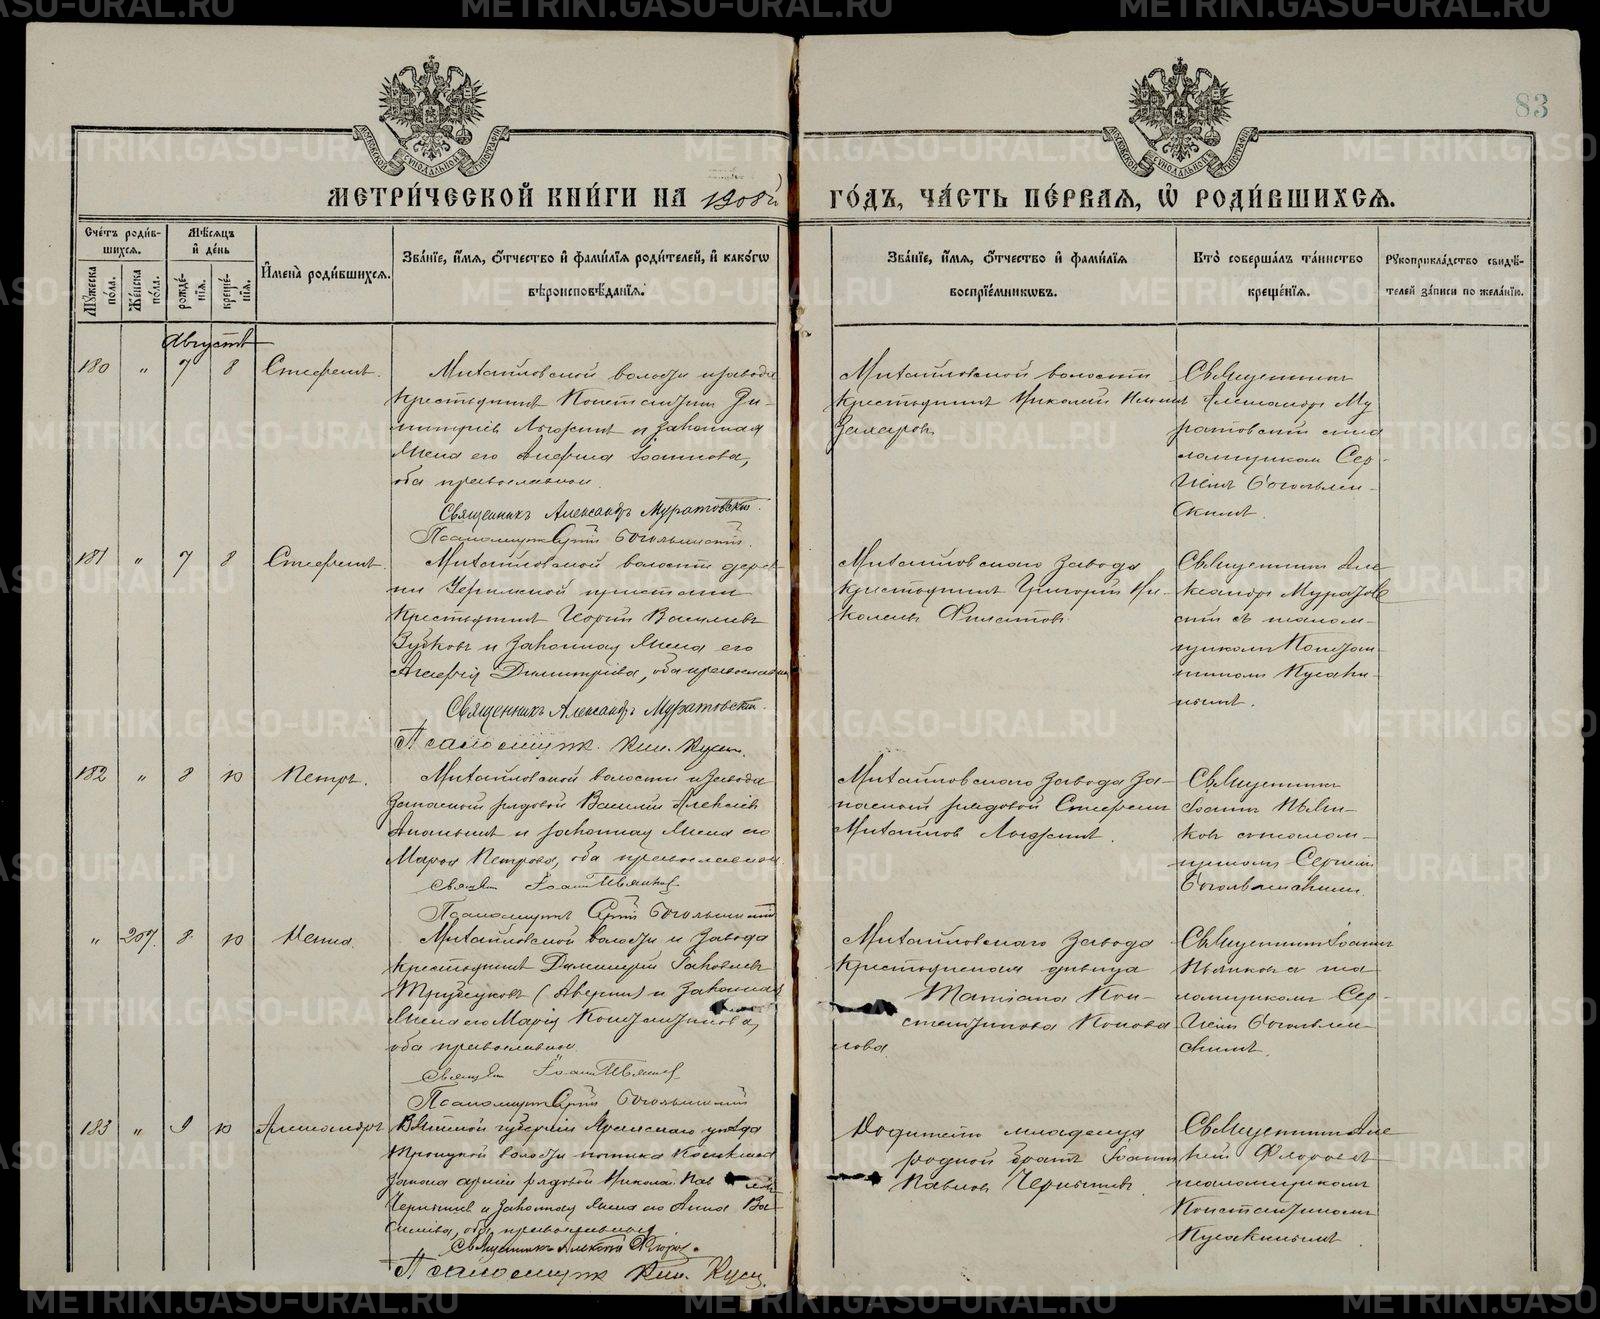 METRIKI.GASO-URAL.RU
83
МОСКОВСКОЙ СѴНОДАЛЬНОЙ ТИПОГРАФІИ
МЕТРИ́ЧЕСКОЙ КНИ́ГИ НА 1908й ГО́ДЪ, ЧА́СТЬ ПЕ́РВАЯ, Ѽ РОДИ́ВШИХСЯ.
Сче́тъ роди́в-
шихся.
Мꙋ́жеска по́ла.
Же́нска по́ла.
Мѣ́сяцъ и҆ де́нь
рожде́-
нїя.
креще́-
нїя.
И҆мена̀ роди́вшихся.
Зва́нїе, и҆́мя, ѻ҆́тчество и҆ фами́лїя роди́телей, и҆ како́гѡ
вѣроисповѣ́данїя.
Зва́нїе, и҆́мя, ѻ҆́тчество и҆ фами́лїя
воспрїе́мникѡвъ.
Кто̀ соверша́лъ та́инство
креще́нїя.
Рꙋкоприкла́дство свидѣ́-
телей за́писи по жела́нїю.
Августъ
180 " 7 8 Стефанъ.
Михайловской волости и завода
крестьянинъ Константин Ди-
митріев Логинъ и законная
жена его Анфиса Іоаннова,
оба православные.
Священникъ Александръ Муратовскій.
Псаломщикъ Сергій Богоявленскій.
Михайловской волости
крестьянинъ Николай
Захаровъ
Священникъ
Александръ Му-
ратовскій съ пса-
ломщиком Сер-
гіемъ Богоявлен-
скимъ.
181 " 7 8 Стефанъ.
Михайловской волости дерев-
ни Уфимской пристани
крестьянинъ Георгій Васильевъ
Зубковъ и законная жена его
Димитріева, оба православные
Священникъ Александръ Муратовскій.
Псаломщик Кон. Кусак.
Михайловскаго завода
крестьянинъ Григорій Ни-
колаевъ Филатовъ
Священникъ Але-
ксандръ Муратов-
скій съ псалом-
щикомъ Констан-
тиномъ Кусаки-
нымъ.
182 " 8 10 Петръ.
Михайловской волости и завода
запасный рядовой Василій Алексѣевъ
Ананьинъ и законная жена его
Марфа Петрова, оба православные.
Псаломщикъ Сергій Богоявленскій
Михайловскаго завода за-
пасный рядовой Стефанъ
Михайлов Логинъ.
Священникъ
Іоаннъ Ивѣни-
ковъ с псалом-
щикомъ Сергіем
Богоявленскимъ
" 207. 8 10 Ксенія.
Михайловской волости и завода
крестьянинъ Димитрій Іаковлевъ
Трубеуковъ (Аверин) и законная
жена его Марія Константинова,
оба православные.
Псаломщикъ Сергій Богоявленскій
Михайловскаго завода
крестьянская дѣвица
Татіана Кон-
стантинова Конова-
лова.
Священникъ Іоаннъ
съ пса-
ломщикомъ Сер-
гіемъ Богоявлен-
скимъ.
183 " 9 10 Александръ
Вятской губерніи Яранскаго уѣзда
Троицкой волости
запаса арміи рядовой Николай Павловъ
Чернышевъ и законная жена его Анна Ва-
сильева, оба православные
Священникъ Алексій Флоров.
Псаломщик Кон. Кусак.
Родителю младенца
родной братъ Іоаннъ
Павловъ Чернышевъ.
Священникъ Але-
ксій Флоровъ съ
псаломщикомъ
Константиномъ
Кусакинымъ.